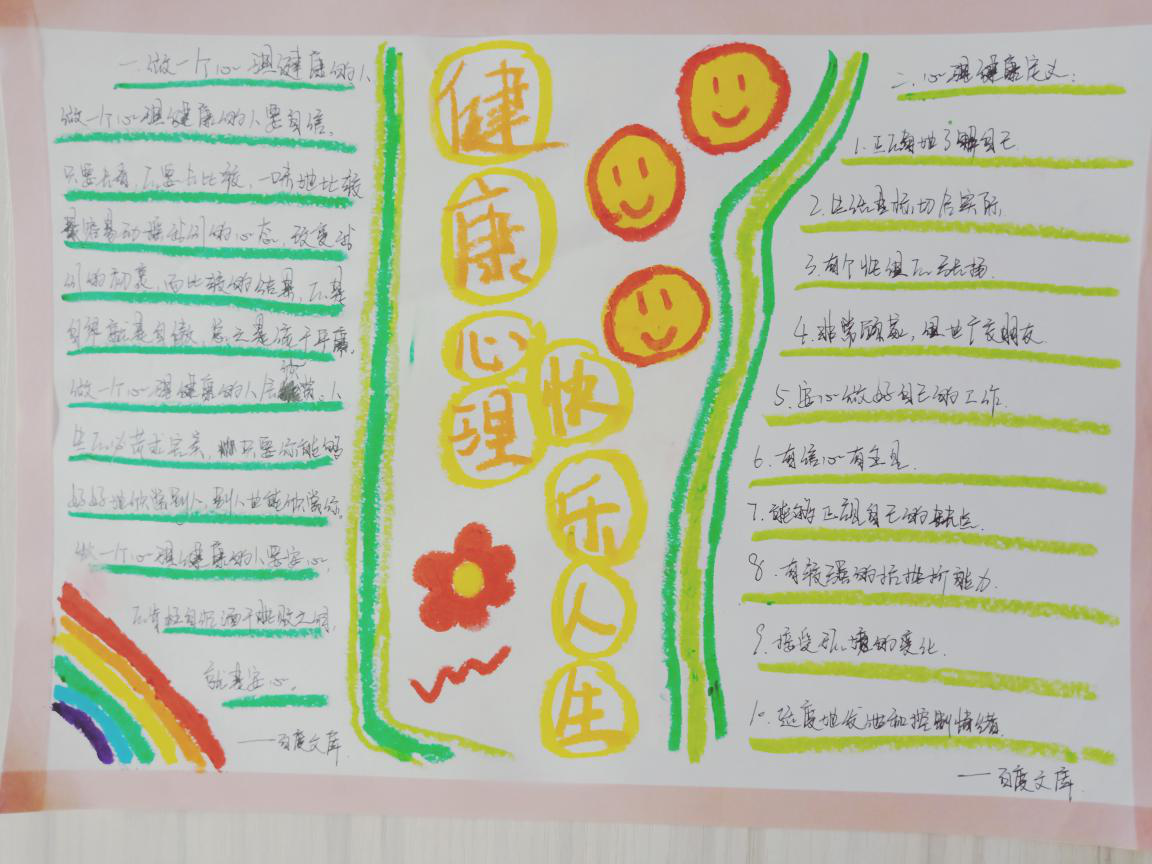 一.做一个心理健康的人
做一个心理健康的人要自信,
只要去看,不要去比较,一味地比较
最容易动摇我们的心态,改变我
们的初衷,而比较的结果,不是
自卑就是自傲,总之是流于平庸。
做一个心理健康的人会欣赏。人
生不必苛求完美,只要你能够
好好地欣赏别人,别人也能欣赏你。
做一个心理健康的人要安心,
不肯枉自沉湎于胜败之间,
就是安心。
——百度文库
健康
心理
快乐人生
二.心理健康定义:
1.正确地了解自己
2.生活目标,切合实际,
3.有个性但不张扬
4.非常顾家,但也广交朋友
5.安心做好自己的工作
6.有信心有主见
7.能够正视自己的缺点
8.有较强的抗挫折能力
9.接受环境的变化
10.适度地发泄和控制情绪
——百度文库